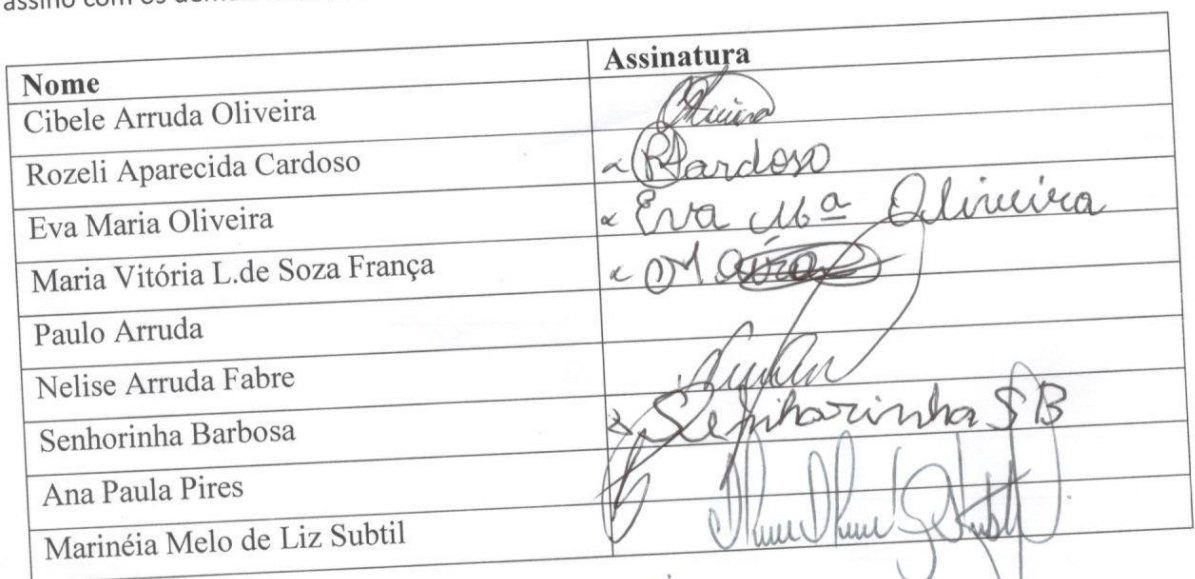 assino com os
Nome Assinatura
Cibele Arruda Oliveira
Rozeli Aparecida Cardoso RCardoso
Eva Maria Oliveira Eva Mª Oliveira
Maria Vitória L.de Soza França
Paulo Arruda
Nelise Arruda Fabre
Senhorinha Barbosa Senhorinha SB
Ana Paula Pires
Marinéia Melo de Liz Subtil